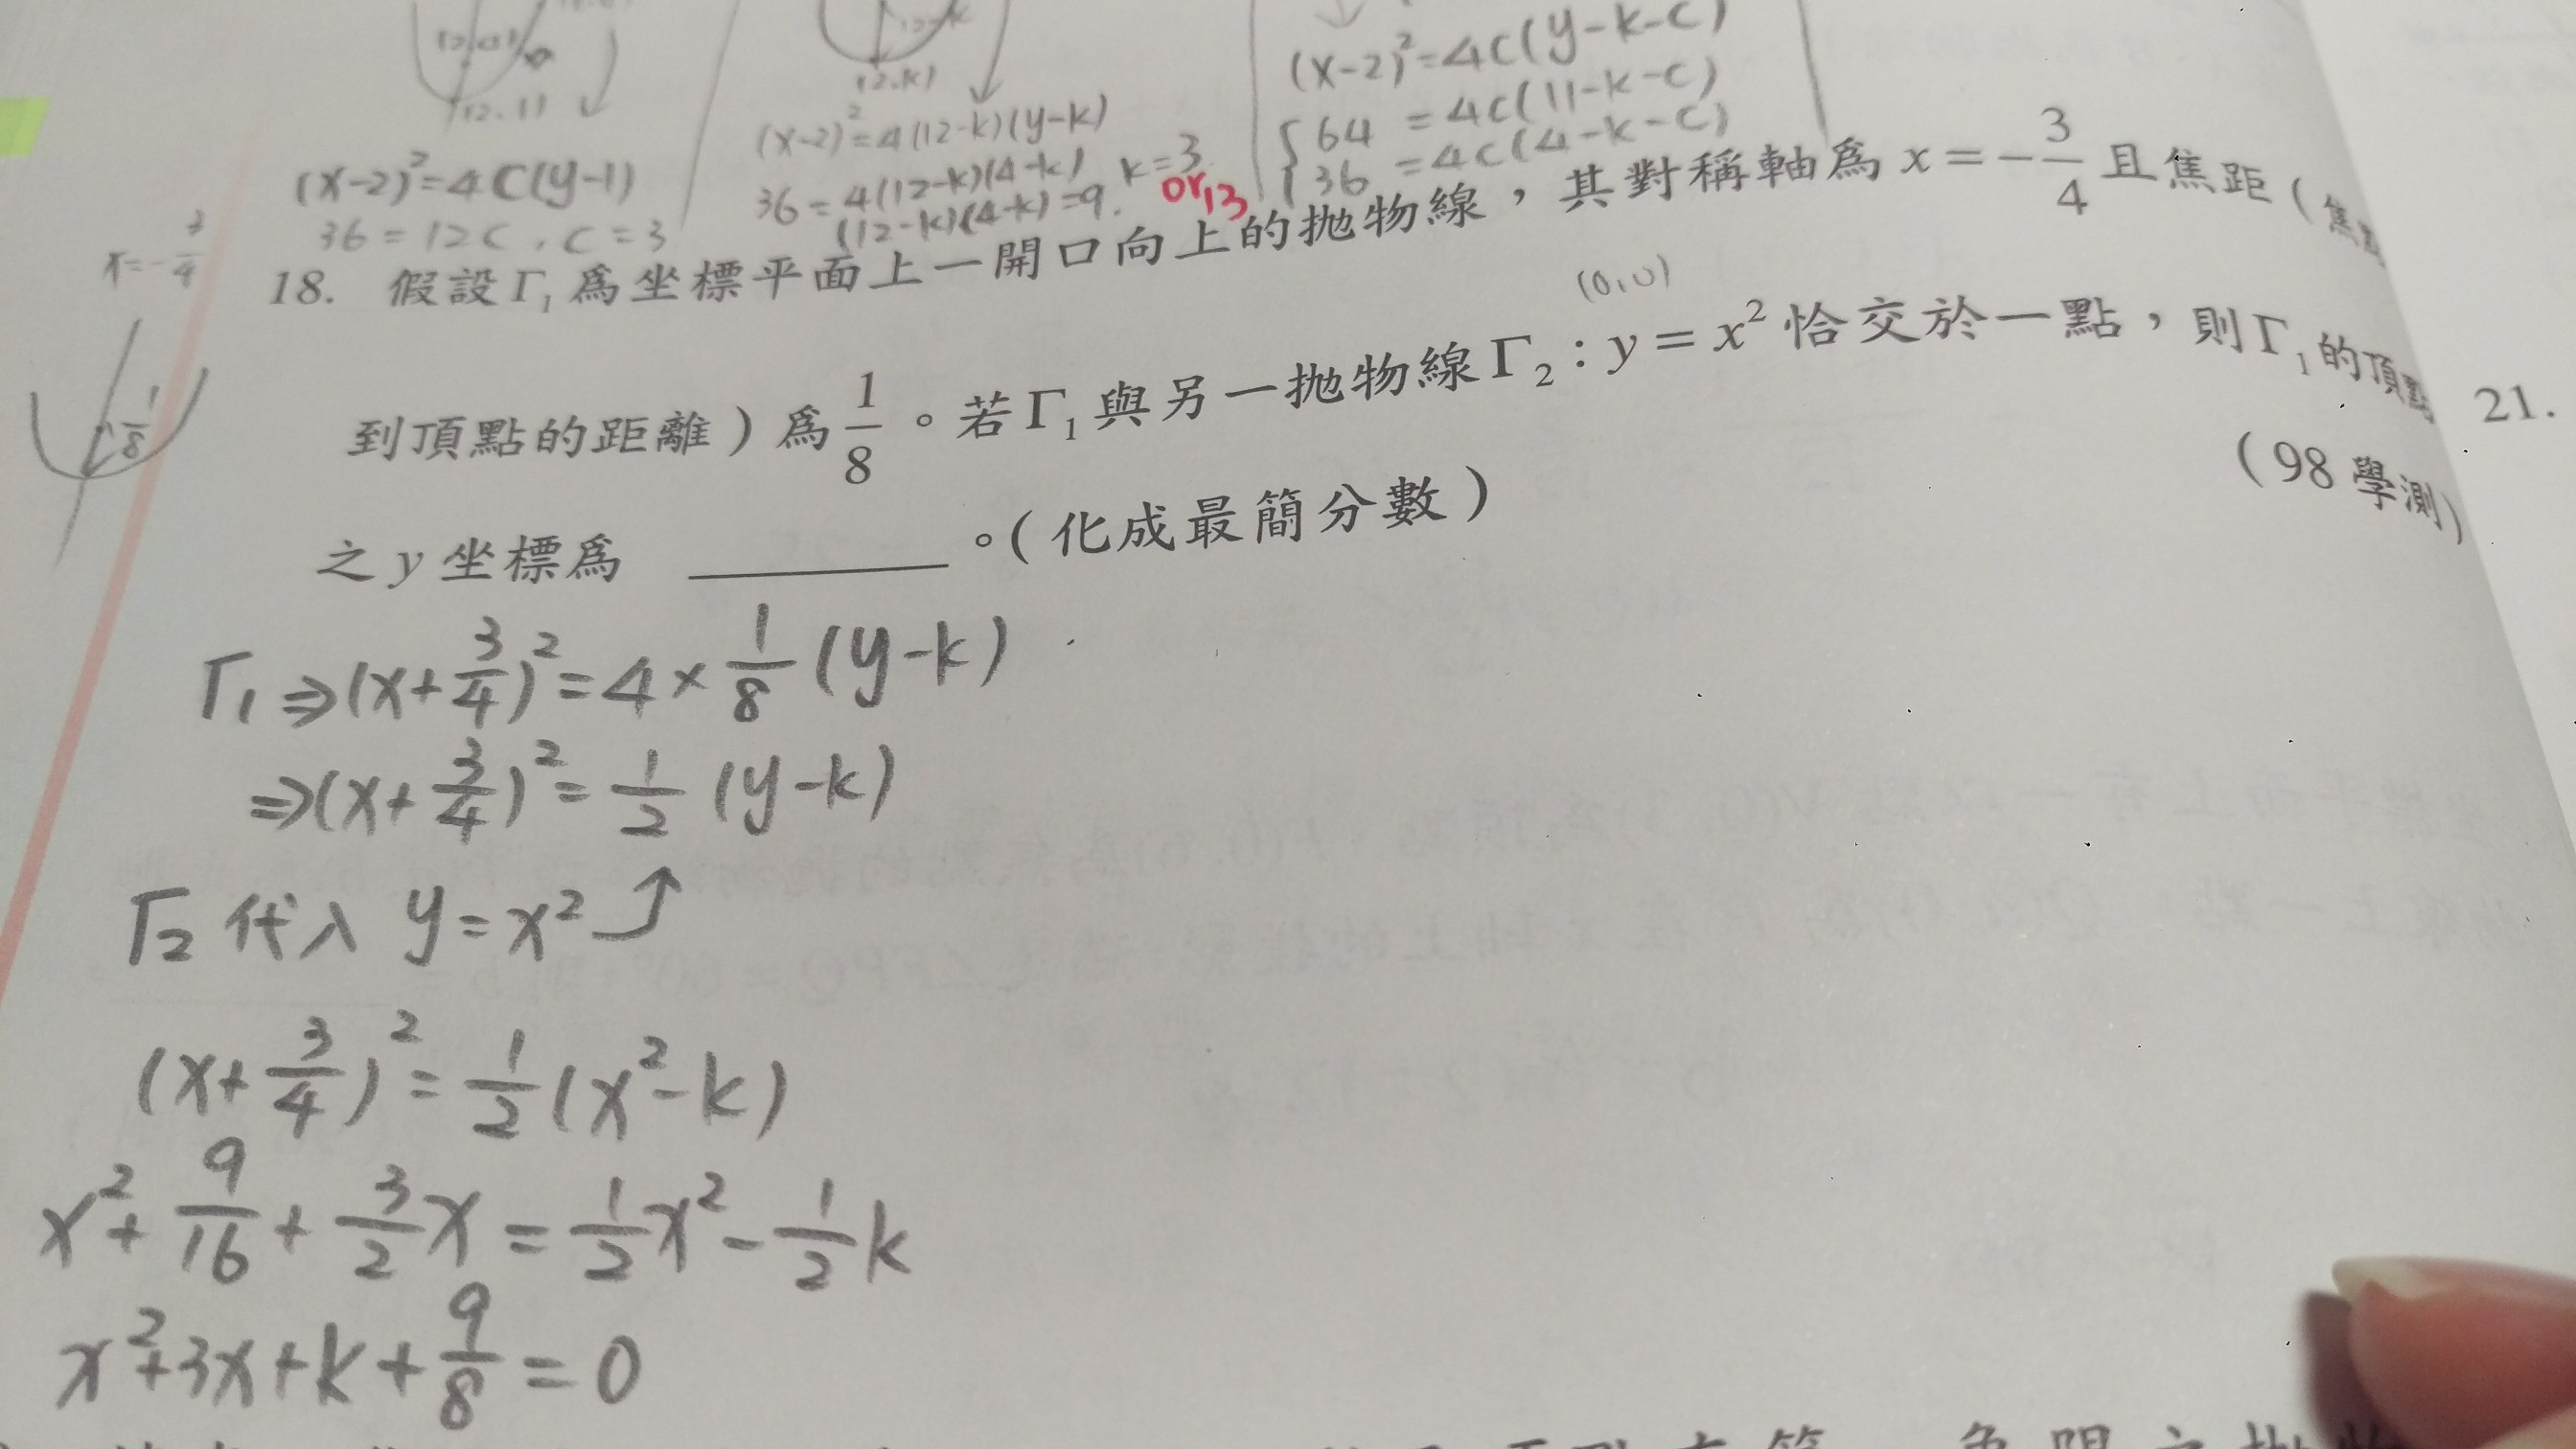 (2,k)
(x-2)²=4c(y-1)
36=12c, c=3
(x-2)²=4(12-k)(y-k)
36=4(12-k)(4-k)
(12-k)(4-k)=9. k=3
or 13
(x-2)²=4c(y-k-c)
64 =4c(11-k-c)
36 =4c(4-k-c)
x=-3/4
18. 假設Γ₁為坐標平面上一開口向上的拋物線,其對稱軸為 x=-3/4 且焦距(焦
(0,0)
到頂點的距離)為1/8。若Γ₁與另一拋物線Γ₂:y=x²恰交於一點,則Γ₁的頂
之y坐標為 ______。(化成最簡分數)
(98學測)
21.
1/8
Γ₁⇒(x+3/4)²=4×1/8(y-k)
⇒(x+3/4)²=1/2(y-k)
Γ₂代入 y=x²
(x+3/4)²=1/2(x²-k)
x²+9/16+3/2x=1/2x²-1/2k
x²+3x+k+9/8=0